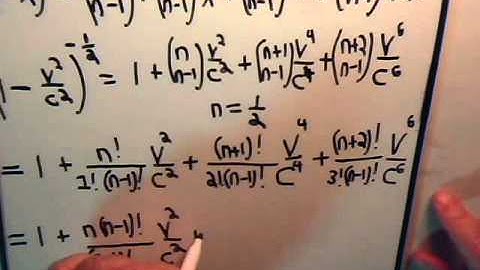 (n-1) (n-1) (n-1)
(1 - v²/c²)^(-1/2) = 1 + (n n-1) v²/c² + (n+1 n-1) v⁴/c⁴ + (n+2 n-1) v⁶/c⁶
n = 1/2
= 1 + n!/(1!(n-1)!) v²/c² + (n+1)!/(2!(n-1)!) v⁴/c⁴ + (n+2)!/(3!(n-1)!) v⁶/c⁶
= 1 + n(n-1)! v²/c²